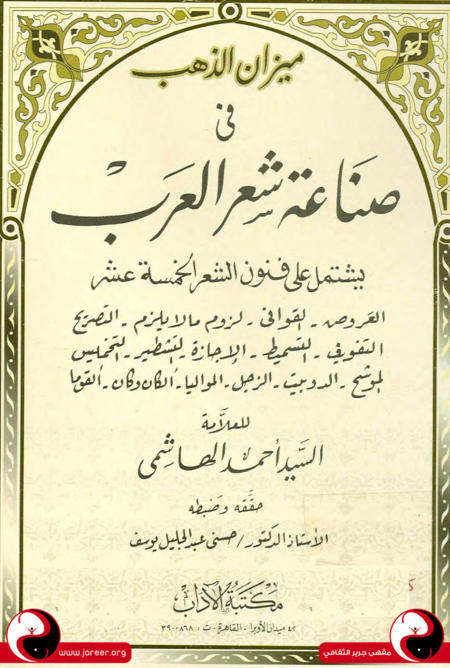 ميزان الذهب
فى
صَنَاعَة شِعر العَرَبْ
يشتمل على فنون الشعر الخمسة عشر
العَروض - القوافى - لزوم مالايلزم - التصريح
التفويف - التسميط - الإجازة - التشطير - التخميس
الموشح - الدوبيت - الزجل - المواليا - الكان وكان - القوما
للعلاّمة
السَّيد أحمد الهاشِمى
حقّقه وضَبطه
الأستاذ الدكتور / حسنى عبد الجليل يوسف
مكتبَة الآدابْ
٤٢ ميدان الأوبرا - القاهرة - ت : ٣٩٠٠٨٦٨
www.jareer.org
مقهى جرير الثقافي